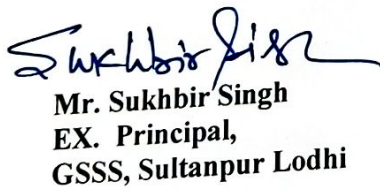 Sukhbir Singh
Mr. Sukhbir Singh
EX. Principal,
GSSS, Sultanpur Lodhi